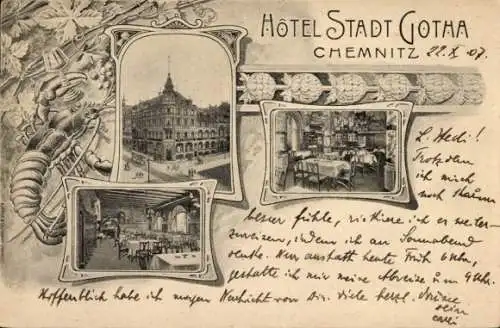 HÔTEL STADT GOTHA
CHEMNITZ 22. X 07.
L. Hedi!
Trotzdem
ich mich
noch kaum
besser fühle, riskiere ich es weiter-
zureisen, indem ich am Sonnabend
Nur anstatt heute Früh 6 Uhr,
gestatte ich mir meine Abreise 4 Uhr
Hoffentlich habe ich morgen Nachricht von Dir. Viele herzl. Grüsse
dein